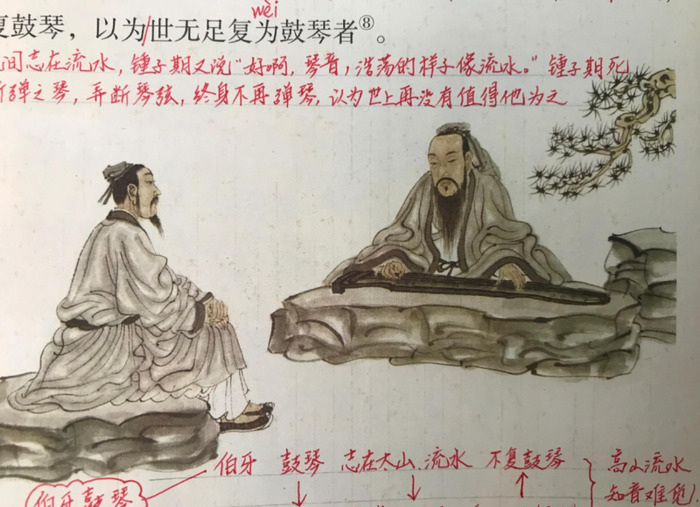 wèi
复鼓琴,以为/世无足复为鼓琴者⑧。
间志在流水,锺子期又说"好啊,琴音,浩荡的样子像流水。"锺子期死
弹之琴,弄断琴弦,终身不再弹琴,认为世上再没有值得他为之
伯牙 鼓琴 志在太山、流水 不复鼓琴
高山流水
知音难觅!
伯牙鼓琴